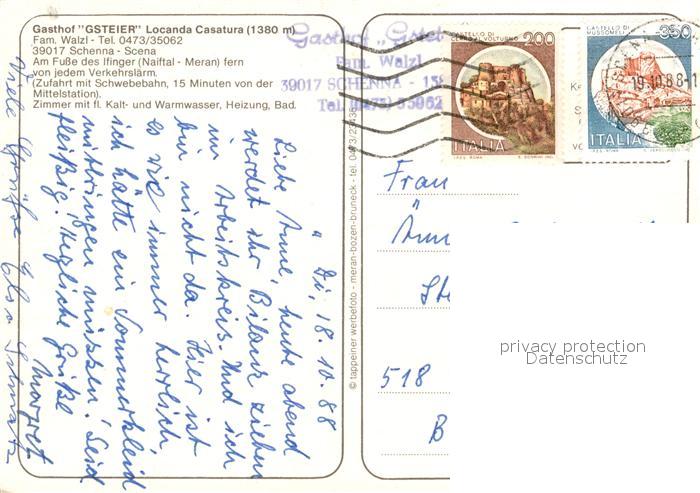 Gasthof "GSTEIER" Locanda Casatura (1380 m)
Fam. Walzl - Tel. 0473/35062
39017 Schenna - Scena
Am Fuße des Ifinger (Naiftal - Meran) fern
von jedem Verkehrslärm.
(Zufahrt mit Schwebebahn, 15 Minuten von der
Mittelstation).
Zimmer mit fl. Kalt- und Warmwasser, Heizung, Bad.
Gasthof „Gstei
Fam. Walzl
39017 SCHENNA - 
Tel. (0473) 35062
CASTELLO DI
CERRO AL VOLTURNO
200
ITALIA
I.P.Z.S. ROMA
CASTELLO DI
MUSSOMELI
350
ITALIA
I.P.Z.S. ROMA
19.10.88-1
Di, 18.10.88
Liebe Änne, heute abend
werdet ihr Bilanz ziehen
im Arbeitskreis. Und ich
bin nicht da. Hier ist
es wie immer herrlich,
ich hätte ein Sommerkleid
mitbringen müssen! Seid
fleißig. Herzliche Grüße
Margret
Viele Grüße Elsa
© tappeiner werbefoto - meran-bozen-bruneck - tel. 0473/23435
Frau
Änn
Ste
518
B
privacy protection
Datenschutz